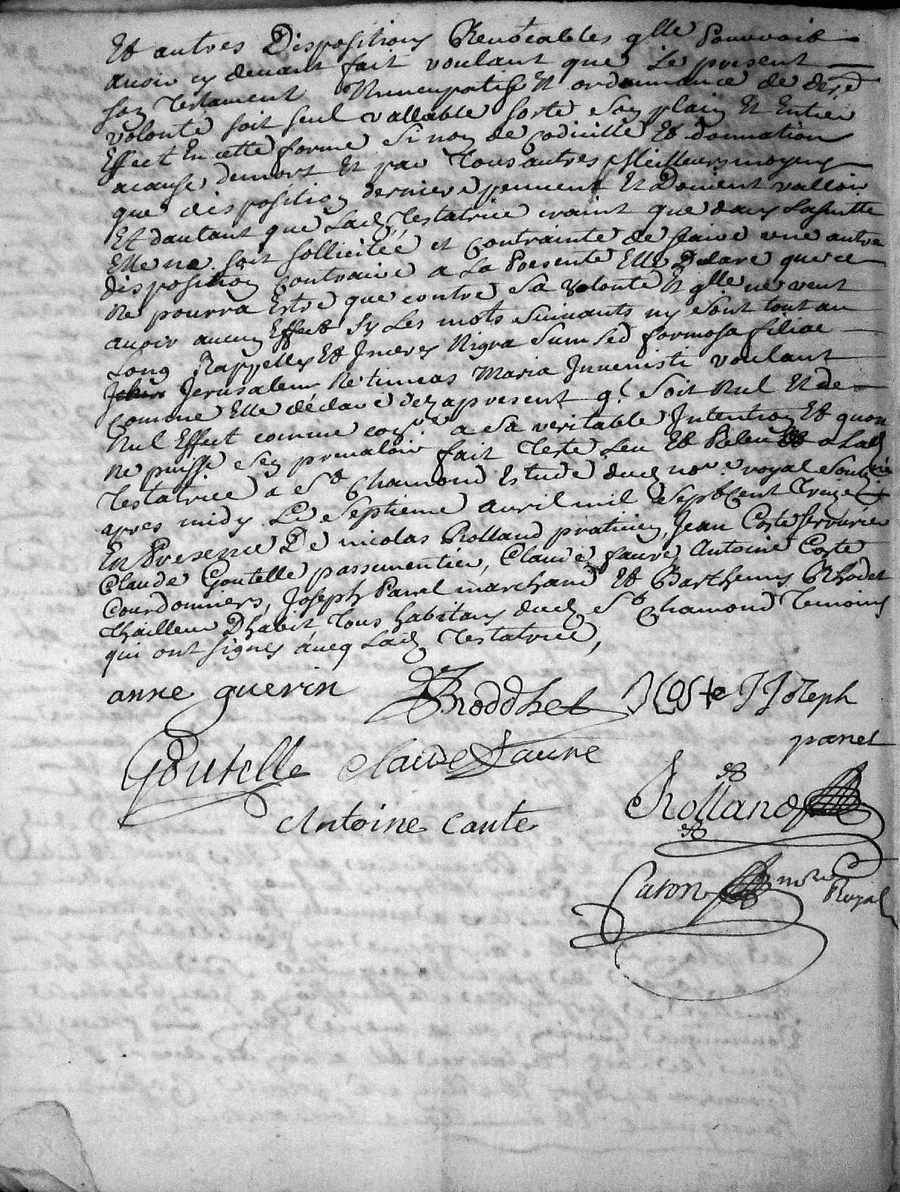 Et autres Dispositions Revocables qlle Pouvoit
avoir cy devant fait voulant que le present
son Testament Nuncupatif Et ordonnance de dere
volonté soit seul vallable sorte son plain Et Entier
Effect En cette forme Si non de codicille Et donnation
acause demort Et par Tous autres Meilleurs moyens
que disposition derniere peuvent Et Doivent valloir
Et dautant que Lad Testatrice craint que dans Lasuitte
Elle ne soit sollicitée et contrainte de faire une autre
disposition contraire a La Presente Elle Declare que ce
Ne pourra Estre que contre sa volonté Et qlle ne veut
avoir aucun Effect Sy Les mots suivants ny sont tout au
Long Rappellés Et Inserés Nigra Sum Sed formosa filiae
Jerusalem Retineas Maria Invenisti voulant
Comme Elle déclare dez apresent ql soit Nul Et de
Nul Effect comme a sa veritable Intention Et quon
ne puisse sen prevaloir fait Leu Et a Lad
Testatrice a St Chamond Estude dud nore royal
apres midy Le Septieme avril mil Sept Cent Treize
En Presence De nicolas Rolland praticien, Jean Coste serrurier
Claude Goutelle passementier, Claude faure Antoine Coste
Courdonniers, Joseph Panel marchand Et Barthemy Rhodet
Thailleur Dhabit Tous habitans dud St Chamond Temoins
qui ont signés aveq Lad Testatrice,
anne guerin Roddhet Coste J Joseph
panel
Goutelle claude faure
Rolland
Antoine caute
Caron nore
Royal